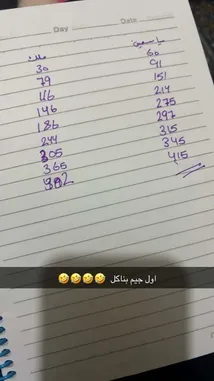 Day
Date
ملك ياسمين
30 60
79 91
116 151
146 214
186 275
244 297
305 315
365 345
382 415
اول جيم بناكل 🤣🤣🤣🤣